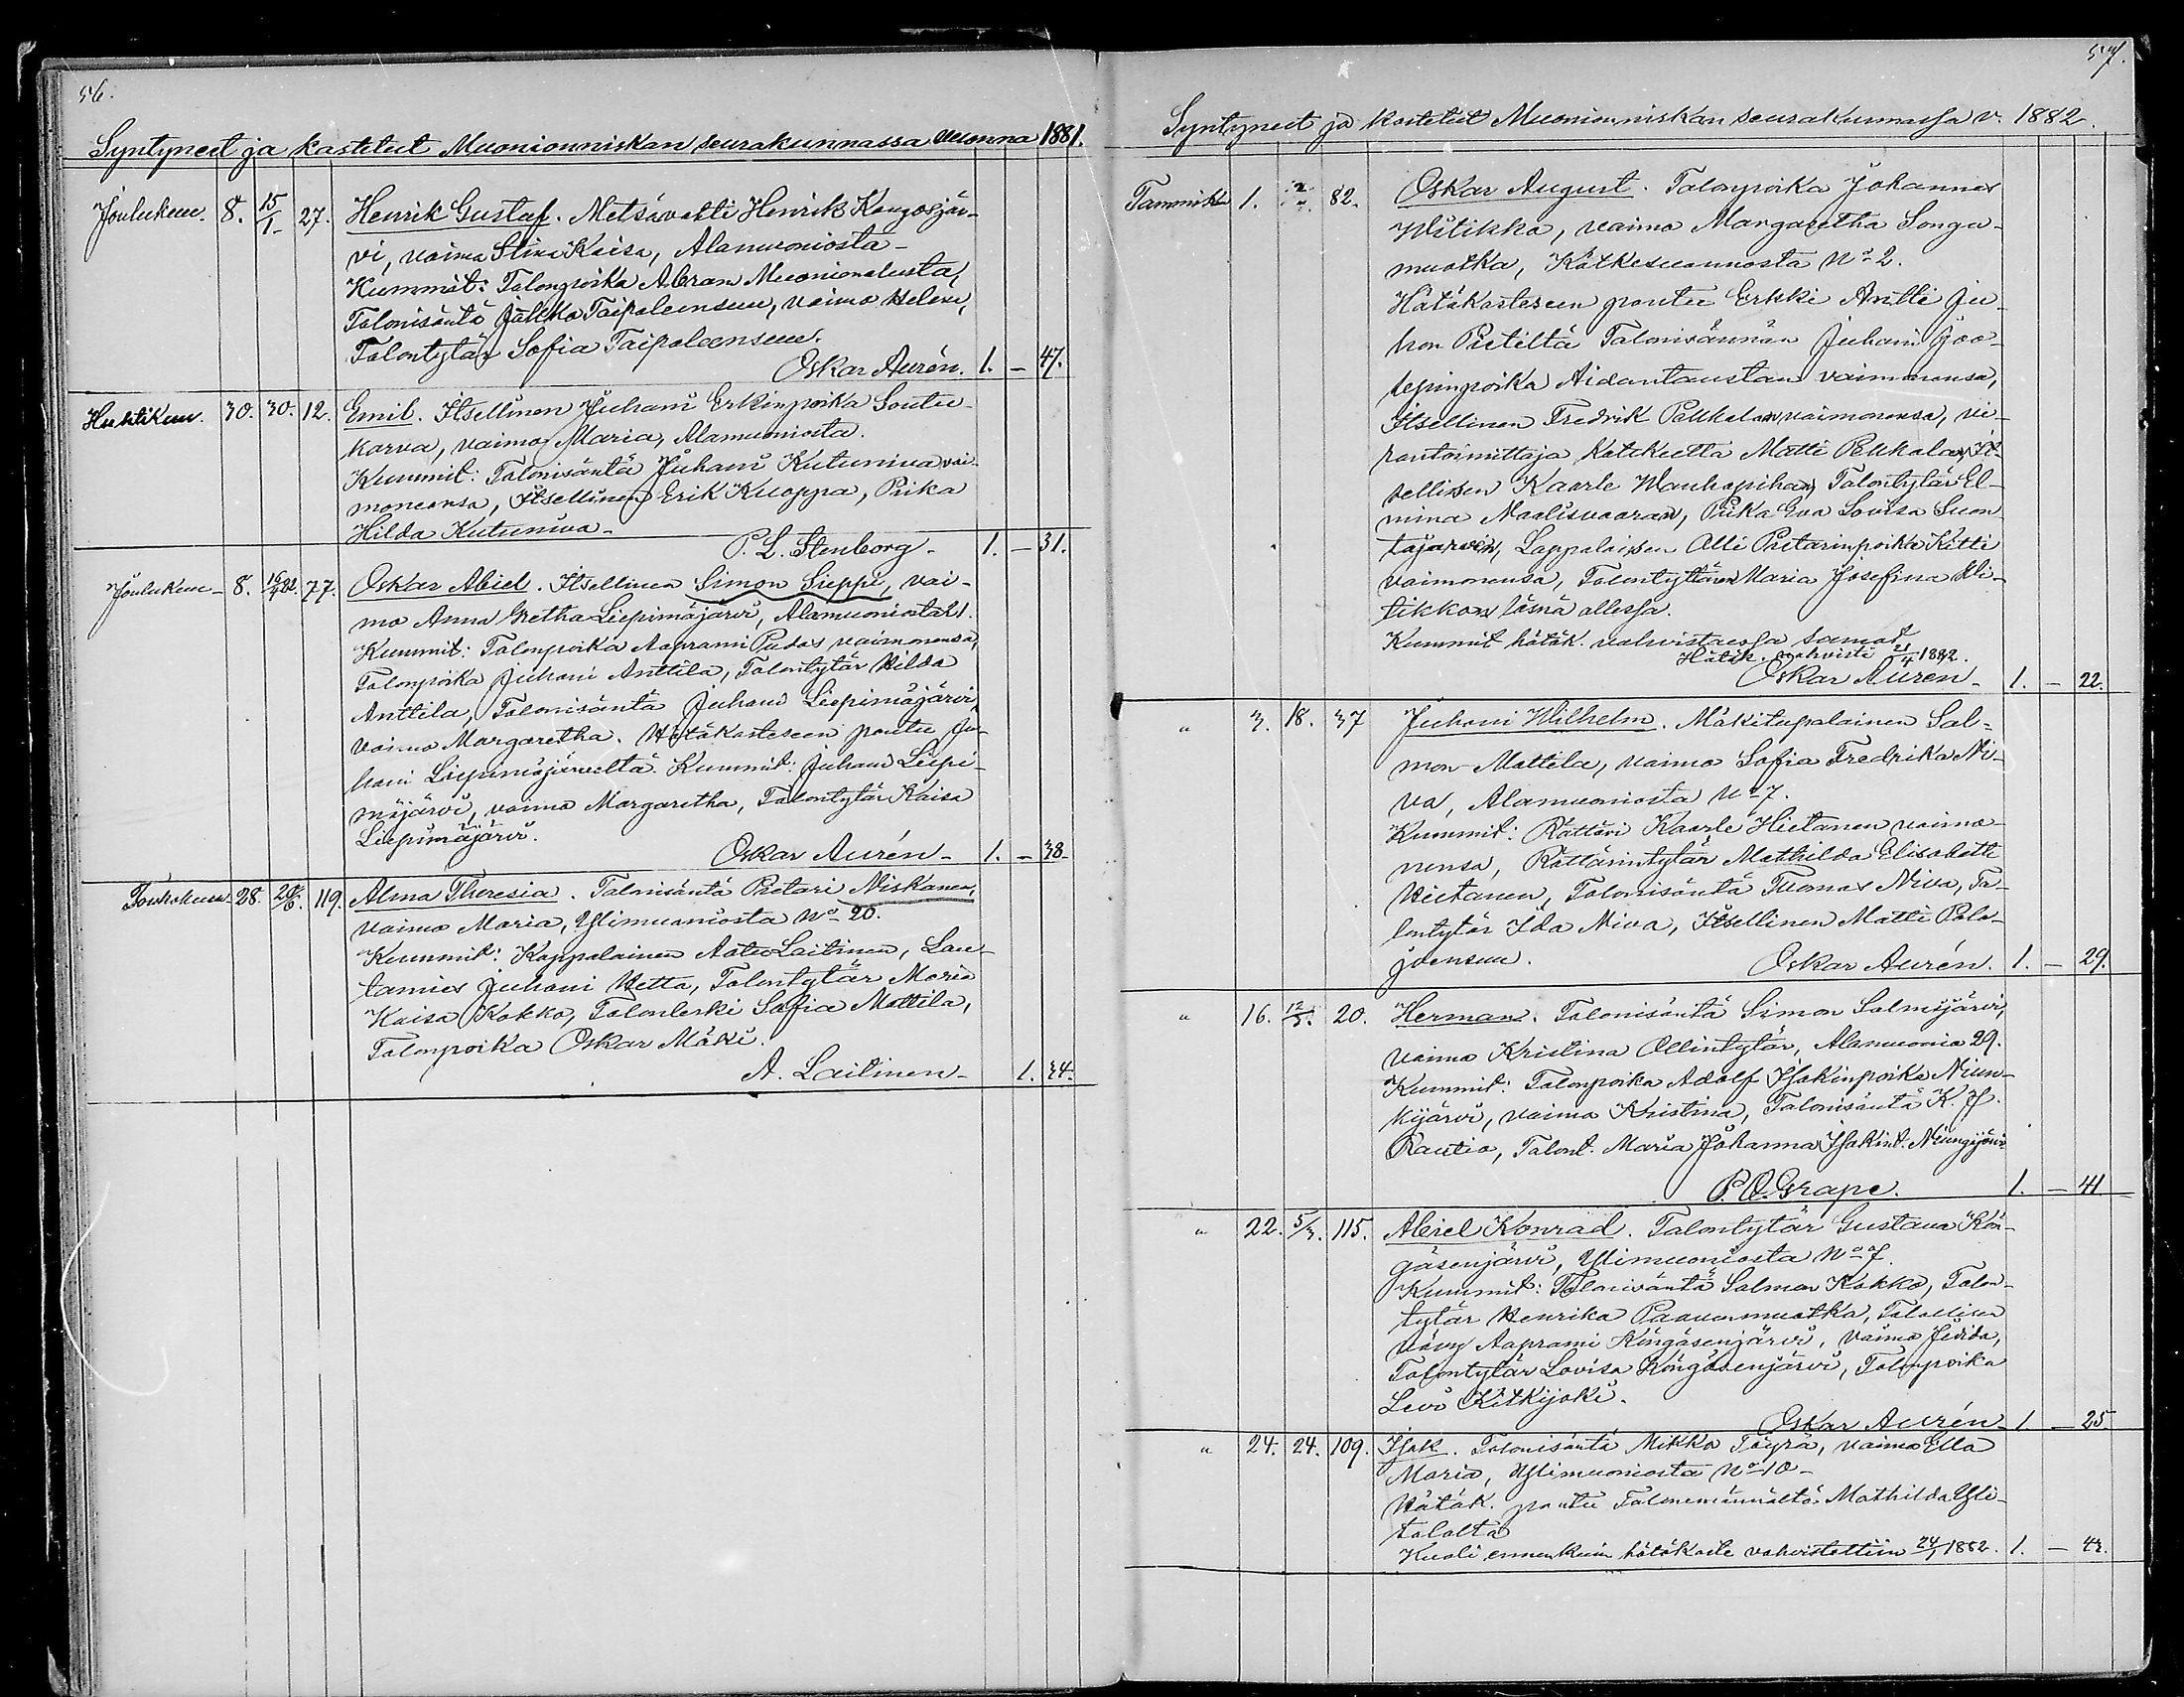 56.
Syntyneet ja kastetut Muonionniskan seurakunnassa vuonna 1881.
Joulukuu. 8. 15/1 27. Henrik Gustaf. Metsävahti Henrik Kangosjär-
vi, vaimo Stina Kaisa, Alamuoniosta-
Kummit: Talonpoika Abram Muonionalusta,
Talonisäntä Jällko Taipaleensuu, vaimo Helena,
Talontytär Sofia Taipaleensuu.
Oskar Aurén. 1. - 47.
Huhtikuu. 30. 30. 12. Emil. Itsellinen Juhani Erkinpoika Soutu-
karva, vaimo Maria, Alamuoniosta.
Kummit: Talonisäntä Juhani Kutuniva vai-
moneansa, Itsellinen Erik Kuoppa, Piika
Hilda Kutuniva-
P. L. Stenborg- 1. - 31.
Joulukuu- 8. 77. Oskar Abiel. Itsellinen Simon Sieppi, vai-
mo Anna Gretha Liepimäjärvi, Alamuoniosta 21.
Kummit: Talonpoika Aaprami Pudas vaimonensa,
Talonpoika Juhani Anttila, Talontytär Hilda
Anttila, Talonisäntä Juhani Liepimäjärvi,
vaimo Margaretha. Hätäkasteseen pantu Ju-
hani Liepimäjärveltä. Kummit: Juhani Liepi-
mäjärvi, vaimo Margaretha, Talontytär Kaisa
Liepimäjärvi.
Oskar Aurén- 1. - 38-
Toukokuu- 28. 119. Alma Theresia. Talonisäntä Pietari Niskanen,
vaimo Maria, Ylimuoniosta No 20.
Kummit: Kappalainen Aatu Laitinen, Lau-
tamies Juhani Hetta, Talontytär Maria
Kaisa Kokko, Talonleski Sofia Mattila,
Talonpoika Oskar Mäki.
A. Laitinen- 1. 34.
57.
Syntyneet ja kastetut Muonionniskan seurakunnassa v. 1882.
Tammik. 1. 82. Oskar August. Talonpoika Johannes
Wiitikko, vaimo Margaretha Songa-
muotka, Kätkesuannosta No 2.
Hätäkasteseen pantu Erkki Antti Ju-
hon Pietiltä Talonisännän Juhani Joo-
seppinpoika Aidantaustan vaimonensa,
Itsellinen Fredrik Pekkalan vaimonensa, vi-
rantoimittaja Katekeetta Matti Pekkalan, It-
sellisen Kaarle Wanhapihan, Talontytär El-
mina Maalisvaaran, Piika Eva Lovisa Suon-
tajarven, Lappalaisen Olli Pietarinpoika Kitti
vaimonensa, Talontyttären Maria Josefina Wii-
tikkon läsnä ollessa.
Kummit hätäk. vahvistaessa samat
Hätäk. vahvisti 21/4 1882.
Oskar Aurén- 1. - 22.
" 3. 18. 37 Juhani Wilhelm. Mäkitupalainen Sal-
mon Mattila, vaimo Sofia Fredrika Ni-
va, Alamuoniosta No 7.
Kummit: Rättäri Kaarle Hietanen vaimo-
nensa, Rättärintytär Mathilda Elisabetti
Hietanen, Talonisäntä Tuomas Niva, Ta-
lontytär Ida Niva, Itsellinen Matti Palo-
joensuu.
Oskar Aurén. 1. - 29.
" 16. 12/3. 20. Herman. Talonisäntä Simon Salmijärvi,
vaimo Kristina Ollintytär, Alamuonio 29.
Kummit: Talonpoika Adolf Isakinpoika Niun-
kijärvi, vaimo Kristina, Talonisäntä K. J.
Rautio, Talont. Maria Johanna Isakint. Niungijärvi
P. O. Grape. 1. - 41
" 22. 5/3. 115. Abiel Konrad. Talontytär Gustava Kön-
gäsenjärvi, Ylimuoniosta No 7.
Kummit: Talonisäntä Salmon Kokko, Talon-
tytär Henrika Paavonmuotka, Talollisen
vävy Aaprami Köngäsenjärvi, vaimo Fredrika,
Talontytär Lovisa Köngäsenjärvi, Talonpoika
Levi Kitkijoki.
Oskar Aurén- 1 - 25.
" 24. 24. 109. Isak. Talonisäntä Mikko Töyrä, vaimo Ulla
Maria, Ylimuoniosta No 10-
Hätäk. pantu Talonemännältä Mathilda Yli-
talolta
Kuoli ennenkuin hätäkaste vahvistettiin 24/1 1882. 1. - 43.